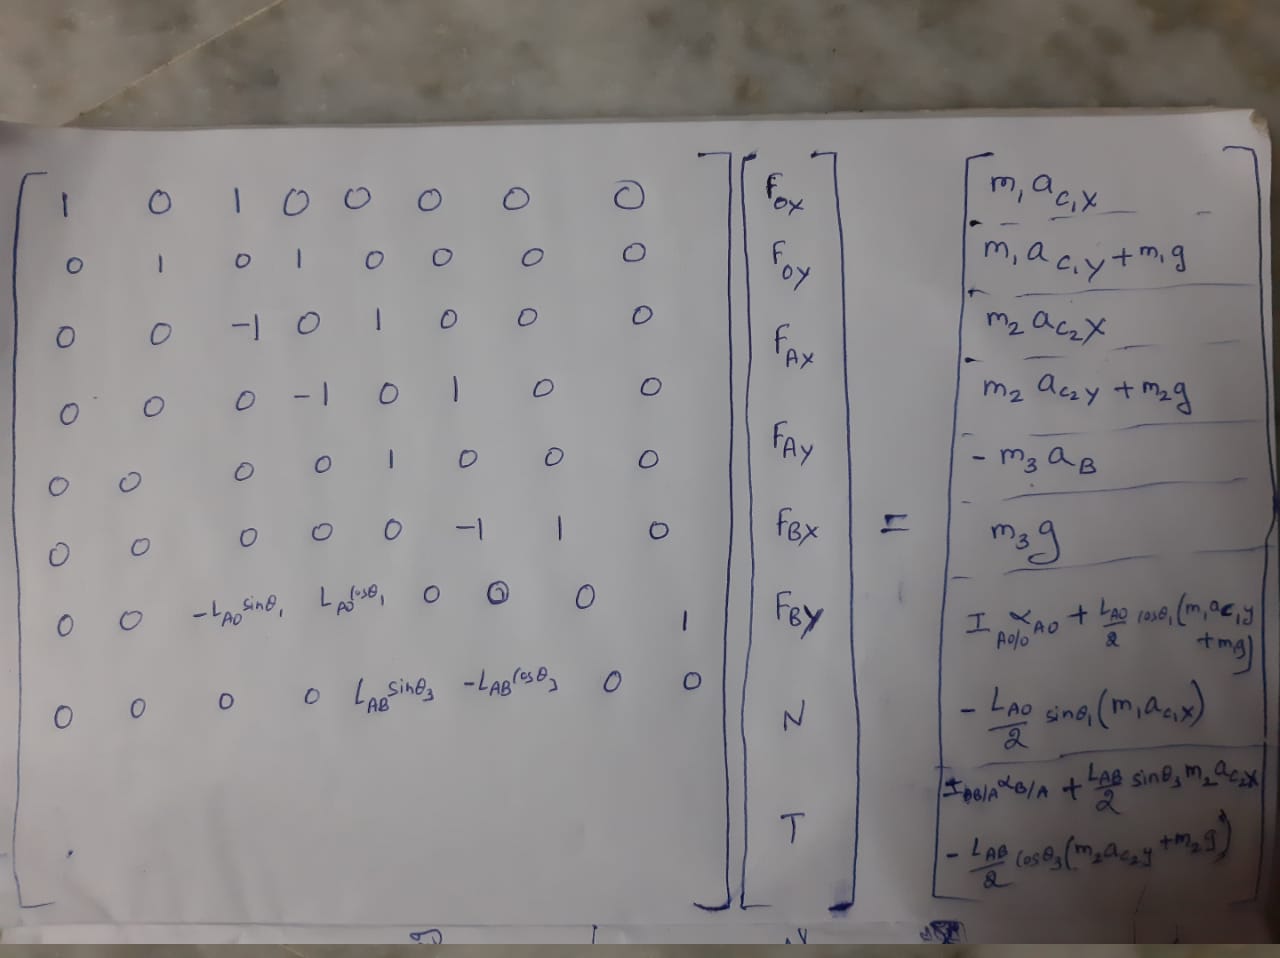 1 0 1 0 0 0 0 0
0 1 0 1 0 0 0 0
0 0 -1 0 1 0 0 0
0 0 0 -1 0 1 0 0
0 0 0 0 1 0 0 0
0 0 0 0 0 -1 1 0
0 0 -L_AO sinθ₁ L_AO cosθ₁ 0 0 0 1
0 0 0 0 L_AB sinθ₃ -L_AB cosθ₃ 0 0
F_OX
F_OY
F_AX
F_AY
F_BX
F_BY
N
T
=
m₁ a_C₁X
m₁ a_C₁Y + m₁g
m₂ a_C₂X
m₂ a_C₂Y + m₂g
- m₃ a_B
m₃g
I_AO/O α_AO + L_AO/2 cosθ₁ (m₁a_C₁y
+ m₁g)
- L_AO/2 sinθ₁ (m₁a_C₁X)
I_B/A α_B/A + L_AB/2 sinθ₃ m₂ a_C₂X
- L_AB/2 cosθ₃ (m₂a_C₂y + m₂g)